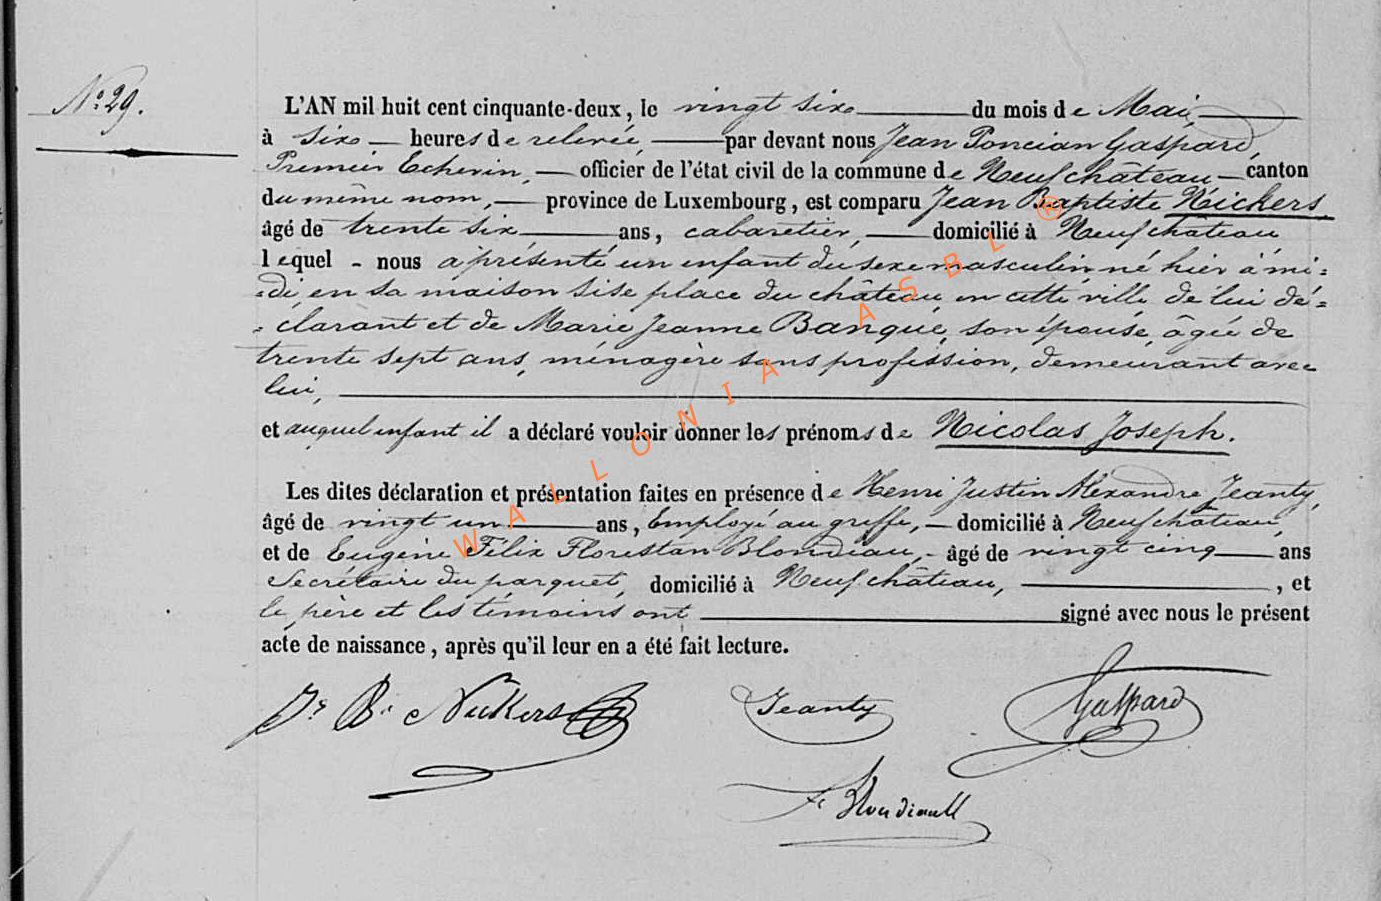 N.º 29.
L'AN mil huit cent cinquante-deux, le vingt six du mois de Mai,
à six heures de relevée, par devant nous Jean Poncian Gaspard,
Premier Echevin, officier de l'état civil de la commune de Neufchâteau canton
du même nom, province de Luxembourg, est comparu Jean Baptiste Nickers
âgé de trente six ans, cabaretier, domicilié à Neufchâteau
lequel - nous a présenté un enfant du sexe masculin né hier à mi=
=di, en sa maison sise place du château en cette ville de lui dé=
=clarant et de Marie Jeanne Banque, son épouse, âgée de
trente sept ans, ménagère sans profession, demeurant avec
lui,
et auquel enfant il a déclaré vouloir donner les prénoms de Nicolas Joseph.
Les dites déclaration et présentation faites en présence de Henri Justin Alexandre Jeanty,
âgé de vingt un ans, Employé au greffe, domicilié à Neufchâteau,
et de Eugène Félix Florestan Blondiau, âgé de vingt cinq ans
Secrétaire du parquet, domicilié à Neufchâteau, , et
le père et les témoins ont signé avec nous le présent
acte de naissance, après qu'il leur en a été fait lecture.
Js B. Nickers Jeanty Gaspard
WALLONIA ASBL ®